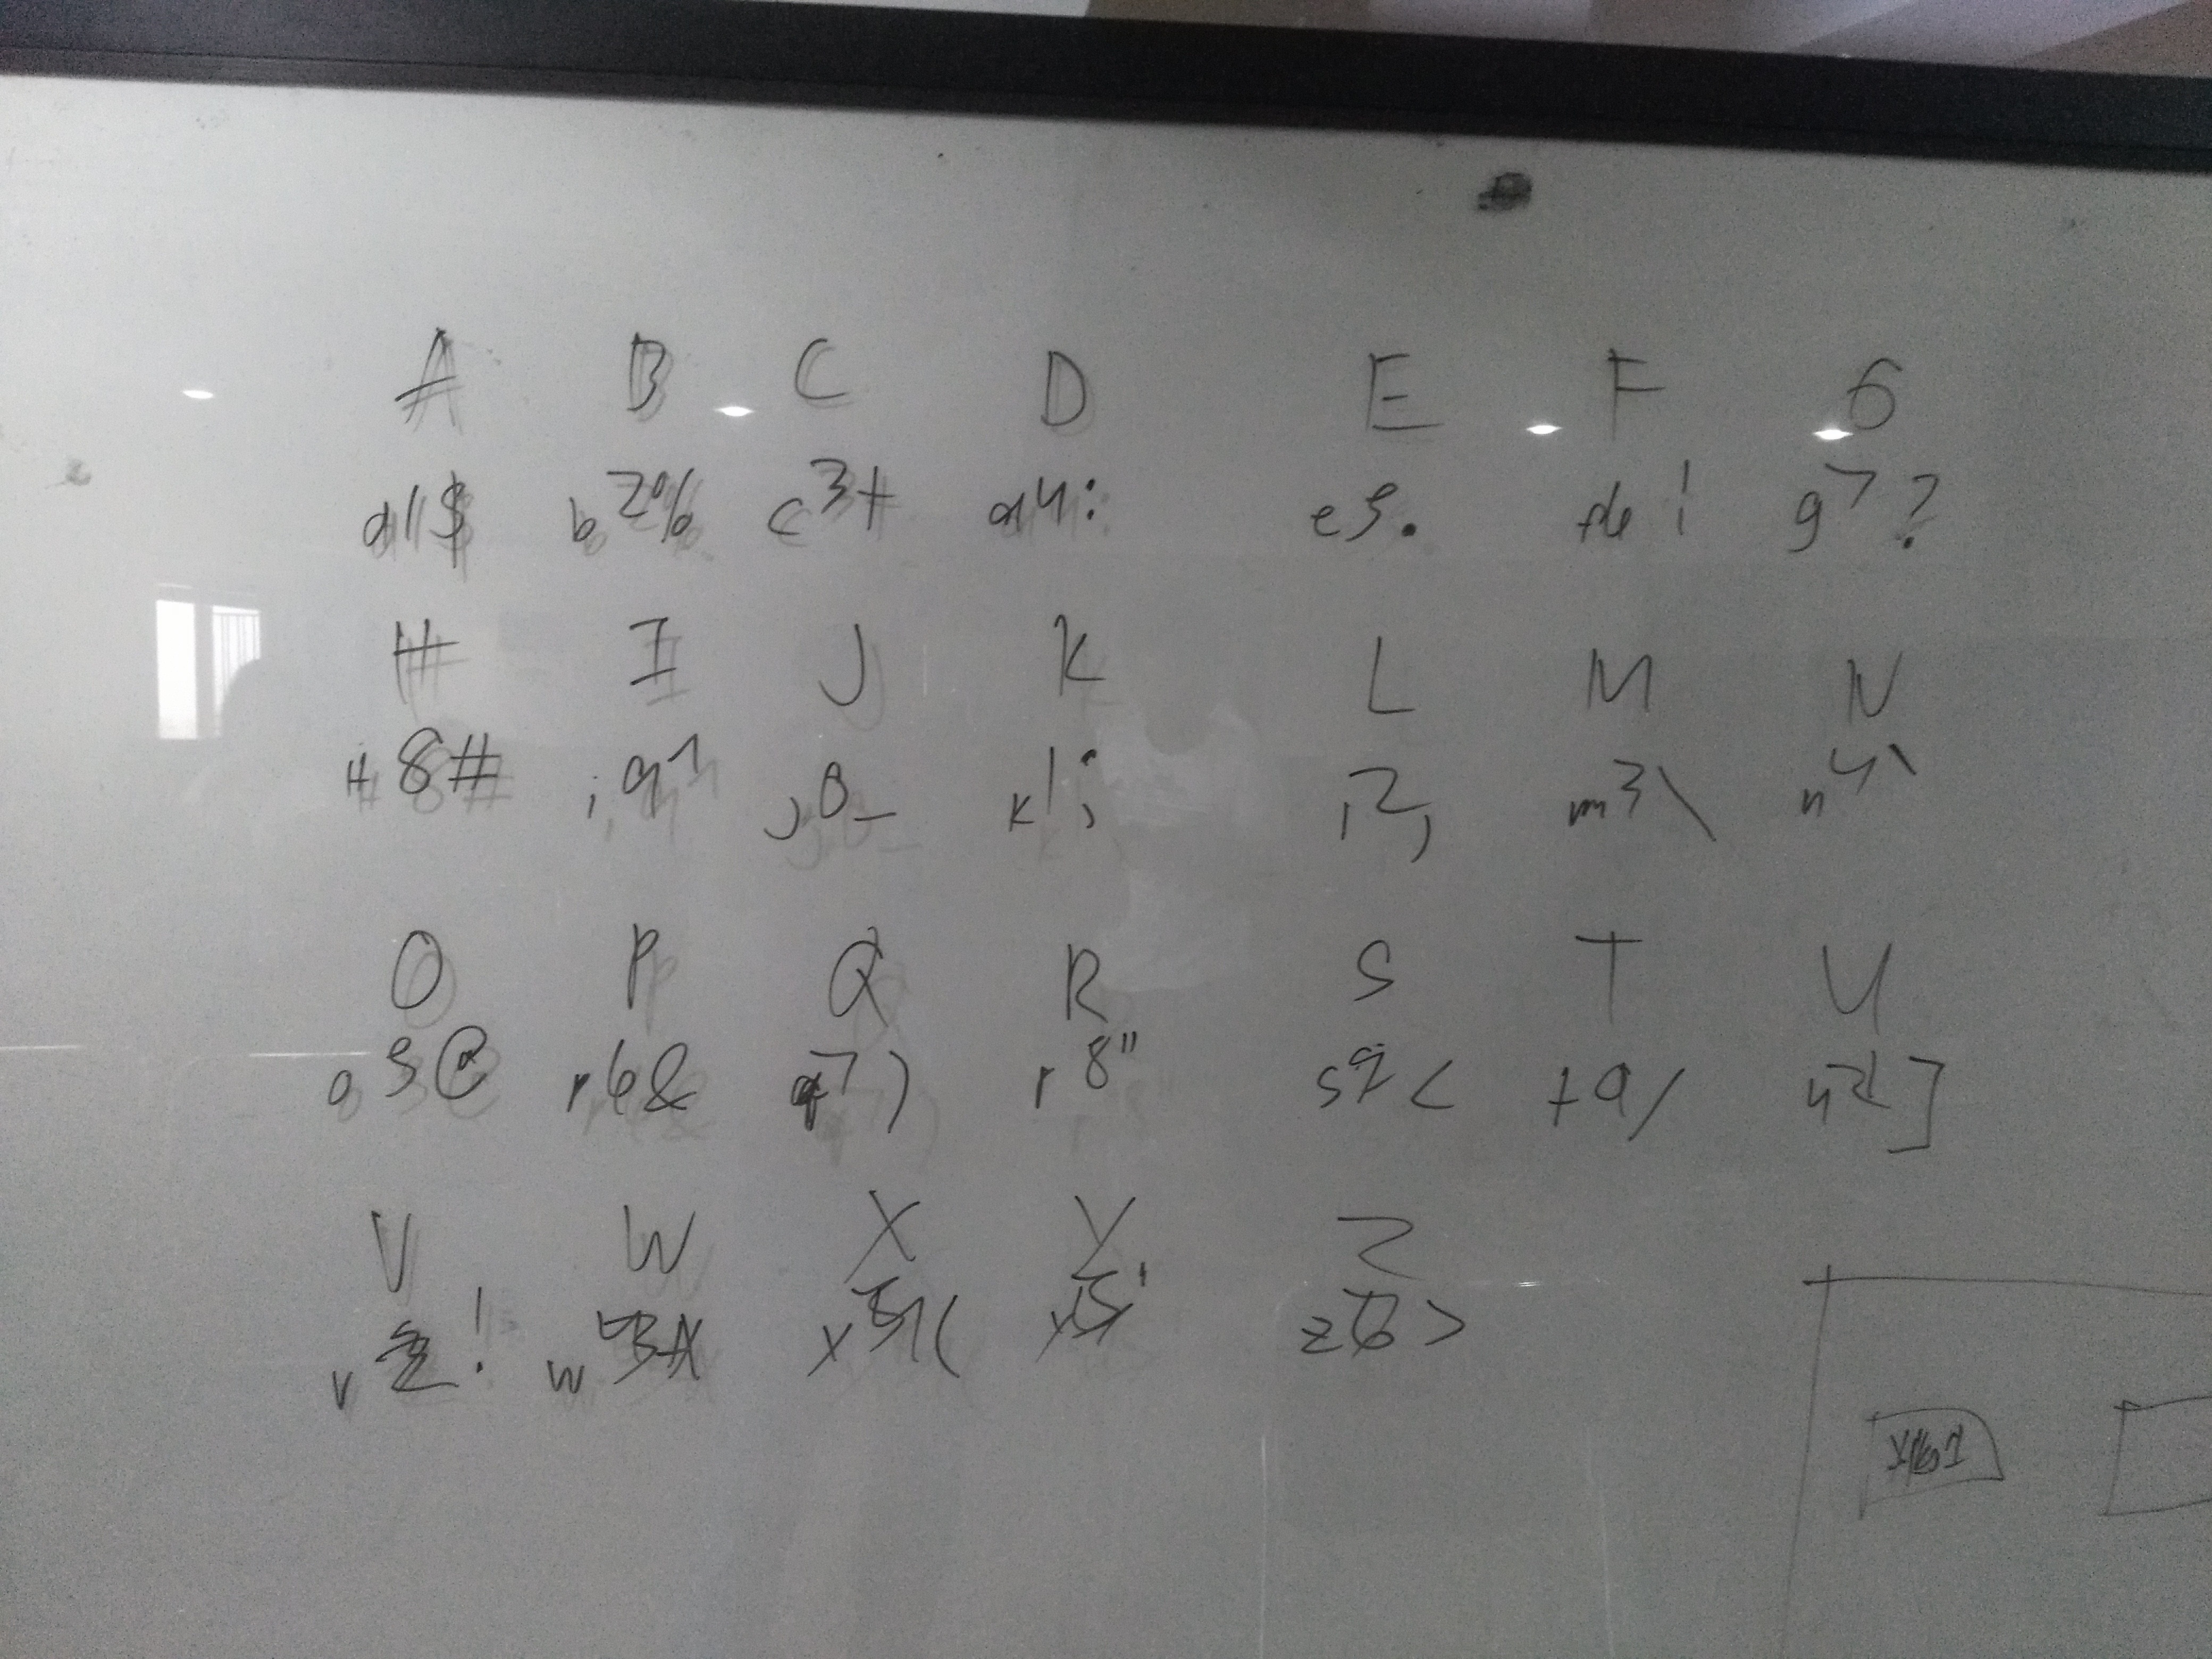 A B C D E F G
a1$ b2% c3+ d4: e5. f6! g7?
H I J K L M N
H8# i91 j0_ k1; l2, m3\ n4`
O P Q R S T U
o5@ p6& q7) r8" s9< t0/ u2]
V W X Y Z
v2! w3 x5( y5' z6>